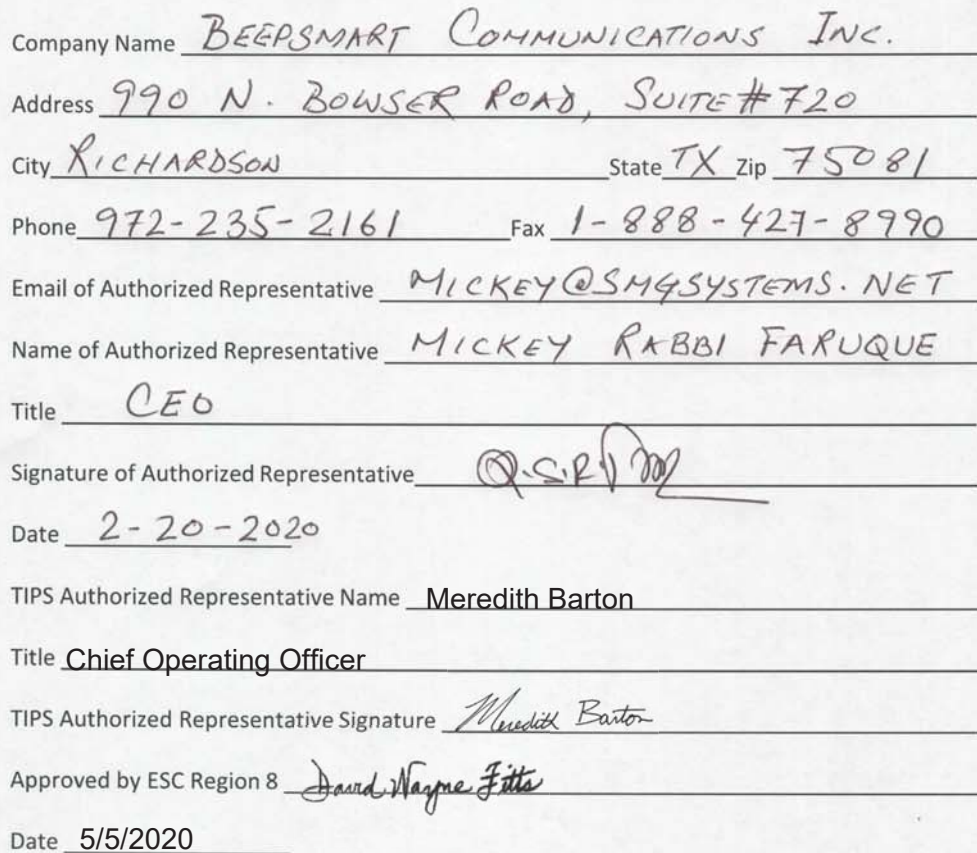 Company Name BEEPSMART COMMUNICATIONS INC.
Address 990 N. BOWSER ROAD, SUITE # 720
City RICHARDSON State TX Zip 75081
Phone 972-235-2161 Fax 1-888-427-8990
Email of Authorized Representative MICKEY@SMGSYSTEMS.NET
Name of Authorized Representative MICKEY RABBI FARUQUE
Title CEO
Signature of Authorized Representative
Date 2-20-2020
TIPS Authorized Representative Name Meredith Barton
Title Chief Operating Officer
TIPS Authorized Representative Signature Meredith Barton
Approved by ESC Region 8 David Wayne Fitts
Date 5/5/2020